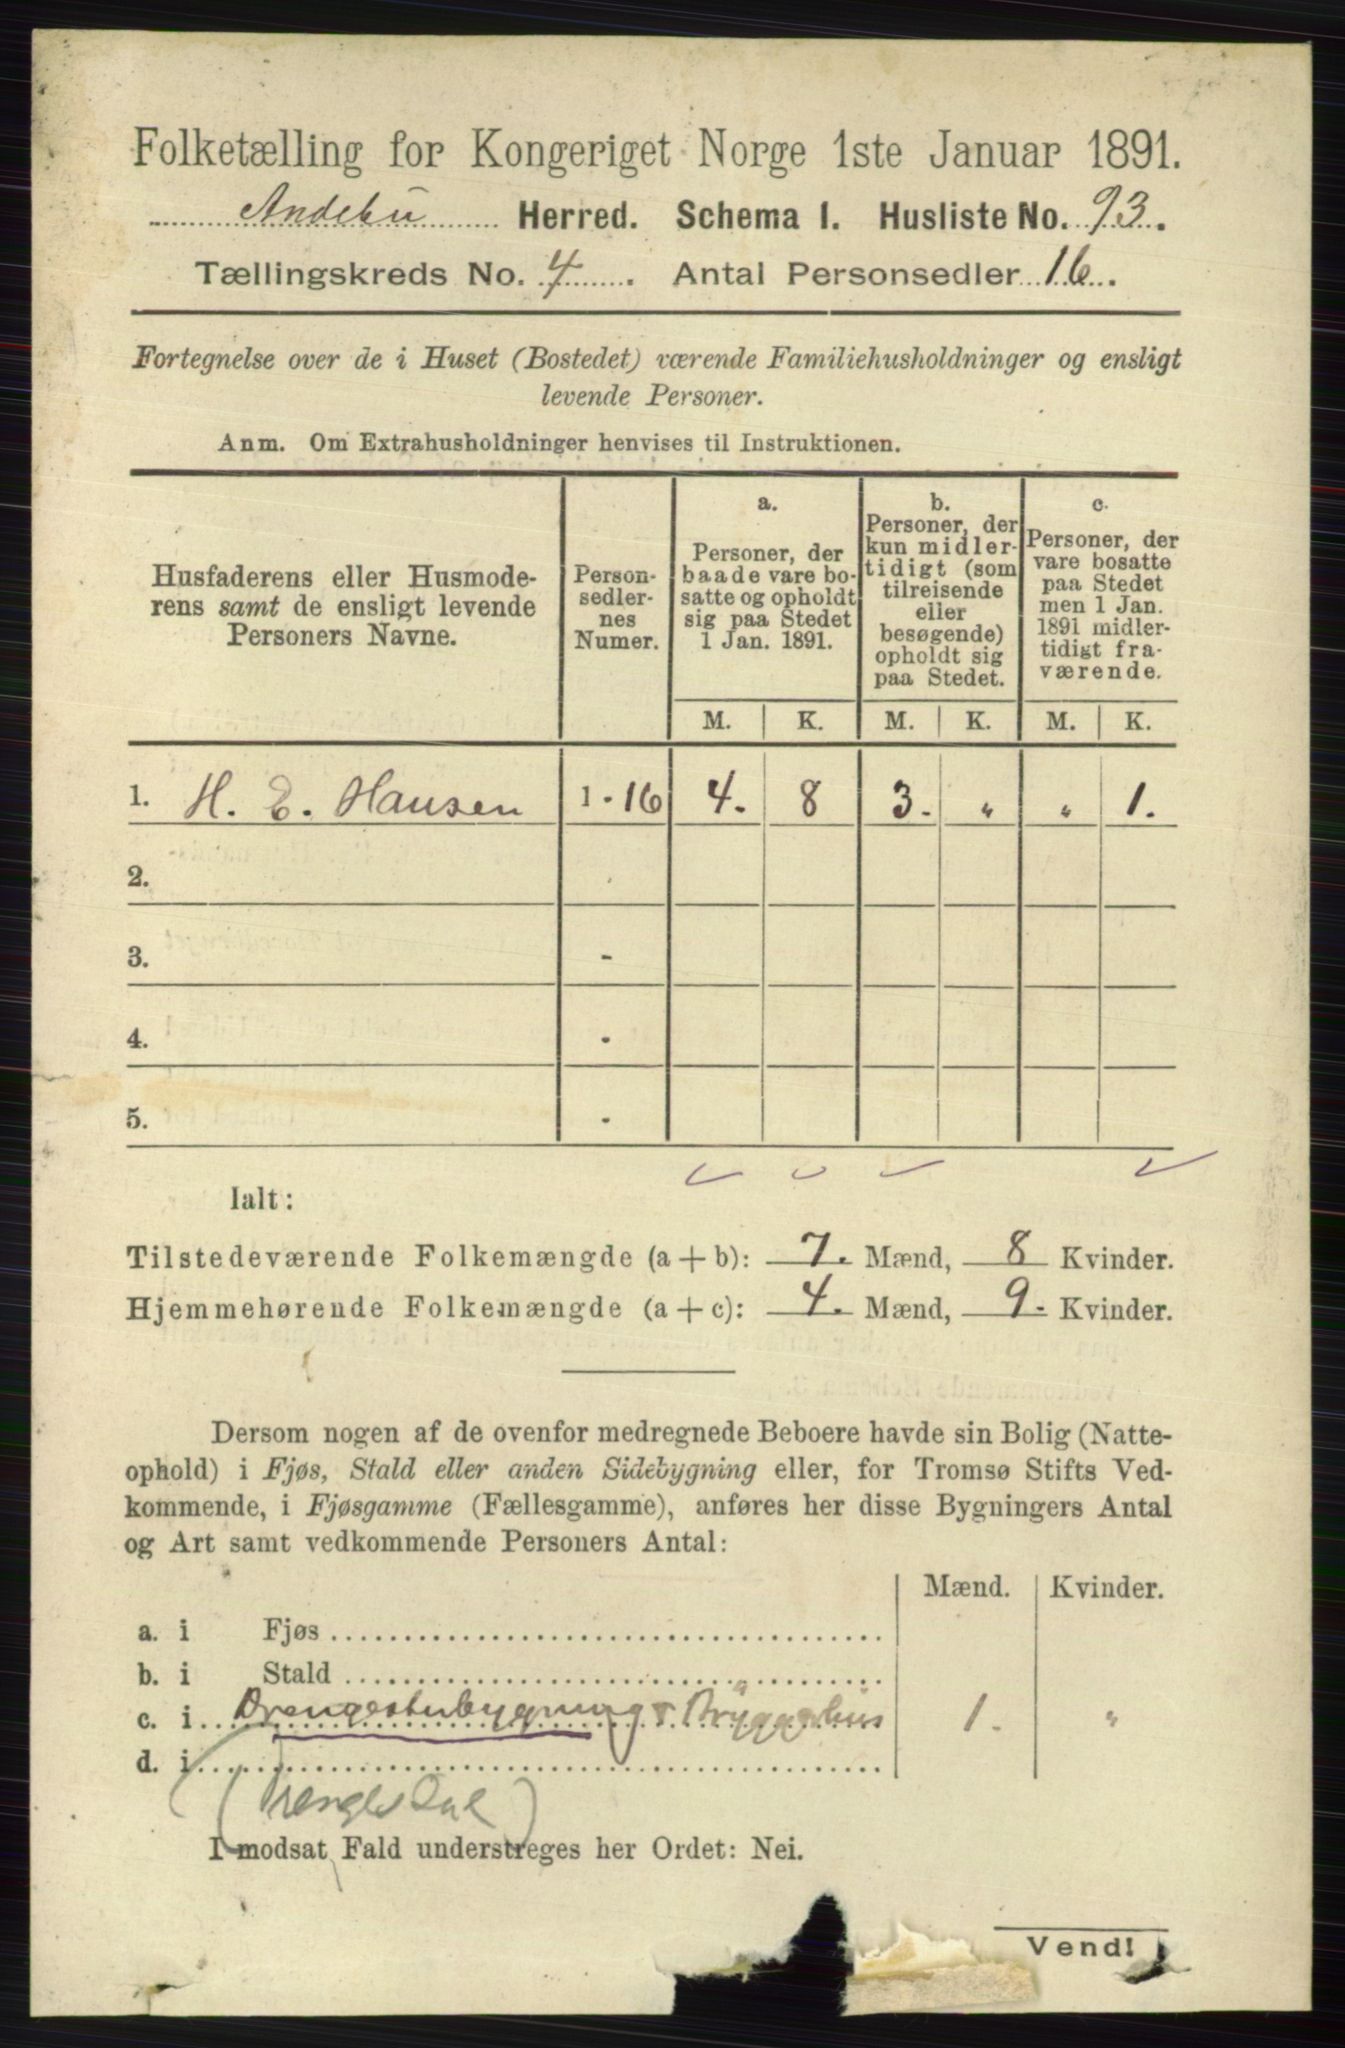 Folketælling for Kongeriget Norge 1ste Januar 1891.
Andebu Herred. Schema 1. Husliste No. 93.
Tællingskreds No. 4. Antal Personsedler 16.
Fortegnelse over de i Huset (Bostedet) værende Familiehusholdninger og ensligt
levende Personer.
Anm. Om Extrahusholdninger henvises til Instruktionen.
Husfaderens eller Husmode-
rens samt de ensligt levende
Personers Navne.
Person-
sedler-
nes
Numer.
a.
Personer, der
baade vare bo-
satte og opholdt
sig paa Stedet
1 Jan. 1891.
b.
Personer, der
kun midler-
tidigt (som
tilreisende
eller
besøgende)
opholdt sig
paa Stedet.
c.
Personer, der
vare bosatte
paa Stedet
men 1 Jan.
1891 midler-
tidigt fra-
værende.
M. K. M. K. M. K.
1. H. E. Hansen 1 - 16 4. 8 3. „ „ 1.
2.
3. -
4. -
5. -
Ialt:
Tilstedeværende Folkemængde (a + b): 7. Mænd, 8 Kvinder.
Hjemmehørende Folkemængde (a + c): 4. Mænd, 9. Kvinder.
Dersom nogen af de ovenfor medregnede Beboere havde sin Bolig (Natte-
ophold) i Fjøs, Stald eller anden Sidebygning eller, for Tromsø Stifts Ved-
kommende, i Fjøsgamme (Fællesgamme), anføres her disse Bygningers Antal
og Art samt vedkommende Personers Antal:
Mænd. Kvinder.
a. i Fjøs
b. i Stald
c. i Drengestubygning & Bryggerhus 1. „
d. i
I modsat Fald understreges her Ordet: Nei.
Vend!